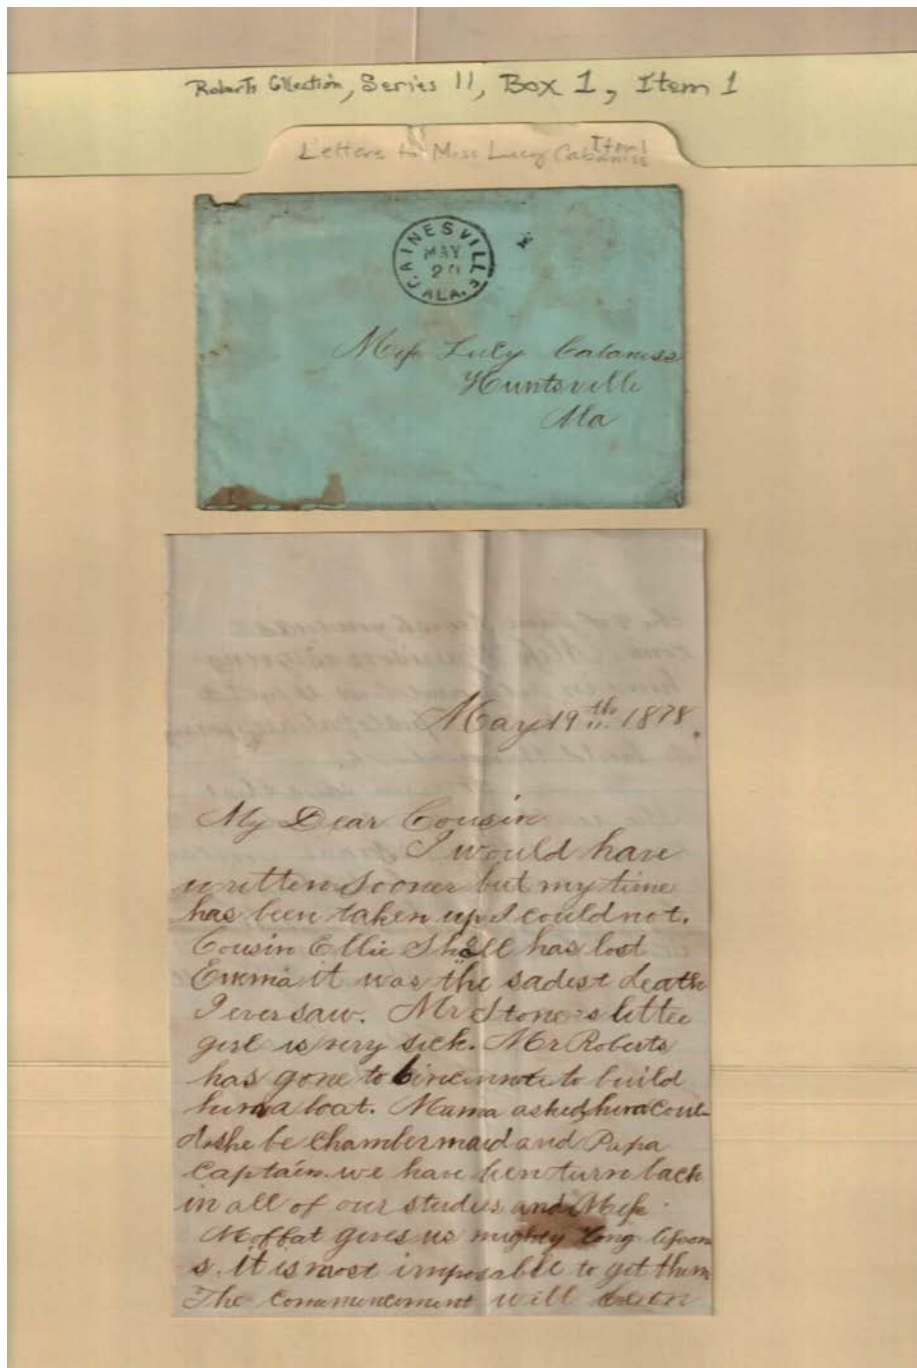 Roberts Collection, Series 11, Box 1, Item 1
Letters to Miss Lucy Cabaniss Item 1
GAINESVILLE
MAY
20
ALA.
Miss Lucy Cabaniss
Huntsville
Ala
May 19th 1878.
My Dear Cousin
I would have
written sooner but my time
has been taken up I could not.
Cousin Ellie has lost
Emma it was the sadest death
I ever saw. Mr Stone-s littee
girl is very sick. Mr Roberts
has gone to to build
him a boat. Mama asked him coul-
d she be chambermaid and Papa
captain. we have ben turn back
in all of our studies and Miss
Moffat gives us mighty long lesson
s. It is most imposable to get them
The commencement will